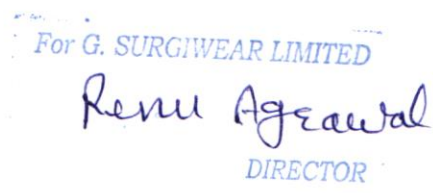 For G. SURGIWEAR LIMITED
Renu Agrawal
DIRECTOR